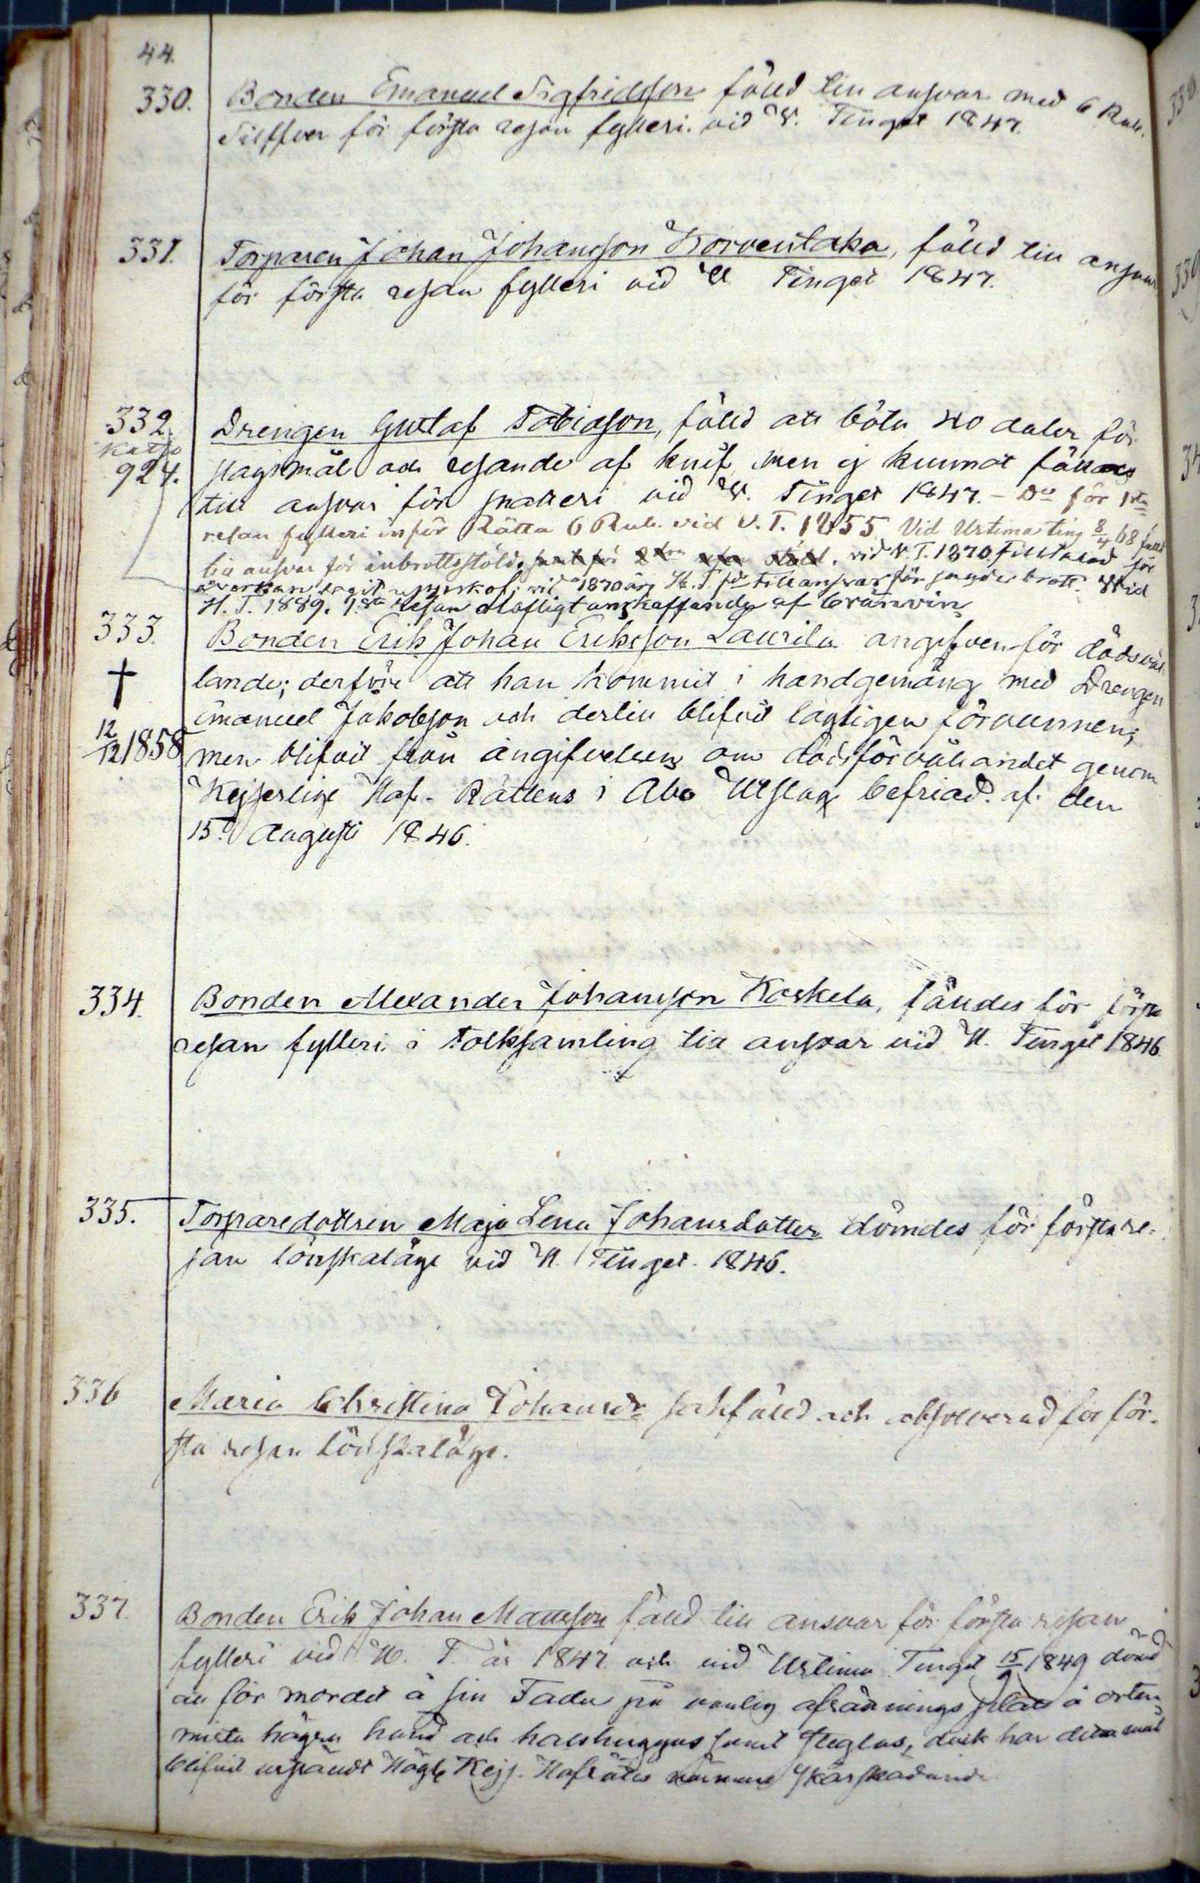 44.
330. Bonden Emanuel Sigfridsson fälld till ansvar med 6 Rub.
Silffver för första resan fylleri vid V. Tinget 1847.
331. Torparen Johan Johansson Korventaka, fälld till ansvar
för första resan fylleri vid V. Tinget 1847.
332. Drengen Gustaf Tobiasson, fälld att böta 40 daler för
Katso
924. slagsmål och resande af knif, men ej kunnat fällas
till ansvar för snatteri vid V. Tinget 1847. – Do för 1sta
resan fylleri inför Rätta 6 Rub. vid V. T. 1855 Vid Urtima ting 8/4 68 fälld
till ansvar för inbrottsstöld. vid V. T. 1870 tilltalad för
åverkan vid 1870 års H. T. till ansvar för brott. Vid
H. T. 1889. 1sta resan olofligt anskaffande af bränvin
333. Bonden Erik Johan Eriksson Laurila angifven för dödsvål-
† lande; derföre att han kommit i handgemäng med Drengen
Emanuel Jakobsson och dertill blifvit lagligen förvunnen;
12/12 1858 men blifvit från angifvelsen om dödsförvållandet genom
Kejserlige Hof-Rättens i Åbo Utslag befriad af den
15de Augusti 1846.
334. Bonden Alexander Johansson Koskela, fäldes för första
resan fylleri i folksamling till ansvar vid V. Tinget 1846.
335. Torparedottren Maja Lena Johansdotter dömdes för första re-
san lönskaläge vid V. Tinget 1846.
336 Maria Christina Johansdr sakfälld och absolverad för för-
sta resan Lönskaläge.
337. Bonden Erik Johan Mattsson fälld till ansvar för första resan
fylleri vid V. T. år 1847 och vid Urtima Tinget 15/ 1849 dömd
att för mordet å sin Fader på vanlig afrättnings plats å orten
mista högra hand och halshuggas samt steglas, dock har detta mål
blifvit Högl. Kejs. Hofrättes